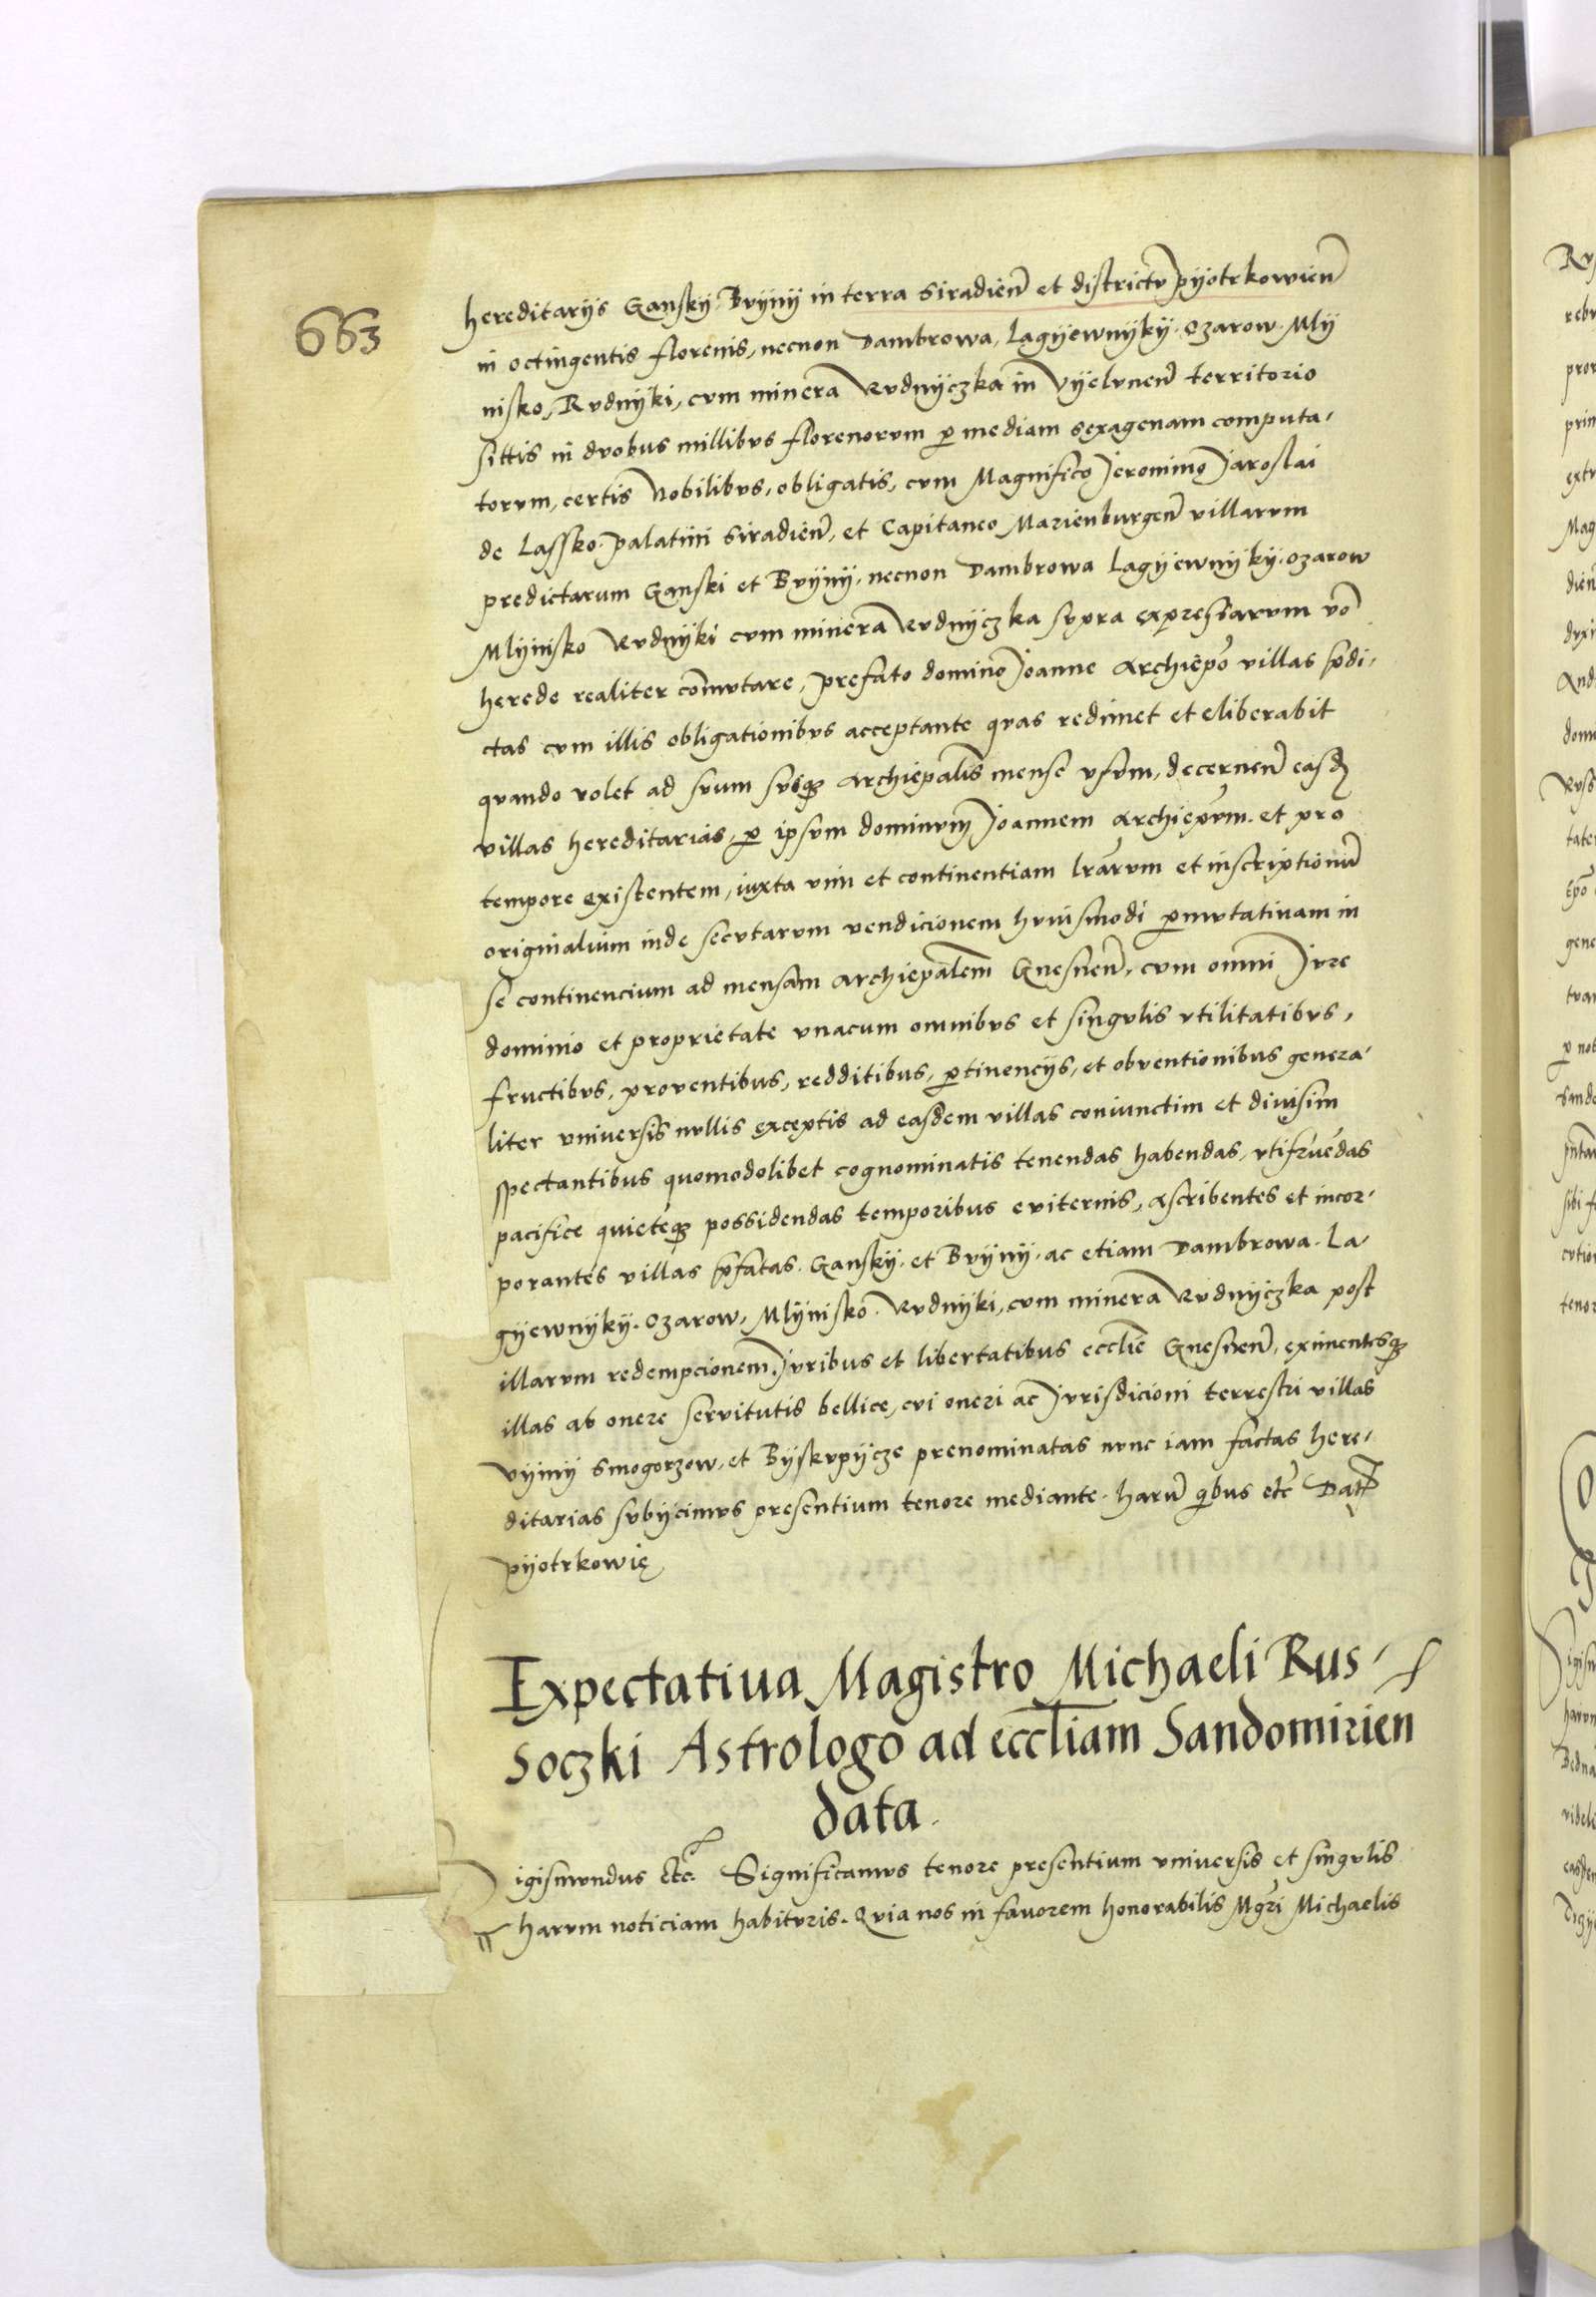 663
hereditarijs Gansky. Bvyny in terra Siradien̄ et districtv pyotrkowien̄
in octingentis florenis, necnon Dambrowa, Lagyewnyky. Ozarow. Mly
nisko, Rvdnyki, cvm minera Rvdnyczka in Vyelvnen̄ territorio
sittis in dvobus millibvs florenorvm ꝑ mediam sexagenam computa-
torvm, certis Nobilibvs, obligatis, cvm Magnifico Jeronimo Jaroslai
de Lassko. palatini Siradien̄, et Capitaneo Marienburgen̄ villarvm
predictarum Ganski et Bvyny, necnon Dambrowa Lagyewnyky. Ozarow
Mlynisko Rvdnyki cvm minera Rvdnyczka svpra expressarvm vō
herede realiter com̄vtare, prefato domino Joanne Archiep̄o villas p̄di-
ctas cvm illis obligationibvs acceptante qvas redimet et eliberabit
qvando volet ad svum svisqꝫ Archiep̄alis mense vsvm, decernen̄ easdꝫ
villas hereditarias, ꝑ ipsvm dominvm Joannem Archiep̄vm. et pro
tempore existentem, iuxta vim et continentiam lr̄arvm et inscriptionū
originalium inde secvtarvm vendicionem hvismodi ꝑmvtativam in
se continencium ad mensam Archiep̄alem Gnesnen̄, cvm omni Jvre
dominio et proprietate vnacum omnibvs et singvlis vtilitatibvs,
frvctibvs, proventibus, redditibus, ꝑtinencijs, et obventionibus genera-
liter vniversis nvllis exceptis ad easdem villas coniunctim et divisim
spectantibus quomodolibet cognominatis tenendas habendas, vtifrvēdas
pacifice quieteqꝫ possidendas temporibus eviternis, Ascribentes et incor-
porantes villas p̄fatas. Gansky. et Bvyny. ac etiam Dambrowa. La-
gyewnyky. Ozarow, Mlynisko. Rvdnyki, cvm minera Rvdnyczka post
illarvm redempcionem. Jvribus et libertatibus ecclīe Gnesnen̄, eximentesqꝫ
illas ab onere servitutis bellice, cvi oneri ac Jvrisdicioni terrestri villas
Vyny Smogorzow, et Byskvpycze prenominatas nvnc iam factas here-
ditarias svbijcimvs presentium tenore mediante. Harū q̄bus etc̄ Dat̄
pyotrkowię
Expectatiua Magistro Michaeli Rus-
soczki Astrologo ad eccl̄iam Sandomirien
data.
Sigismvndus etc. Significamvs tenore presentium vniversis et singvlis
harvm noticiam habitvris. Qvia nos in favorem honorabilis Mgr̄i Michaelis